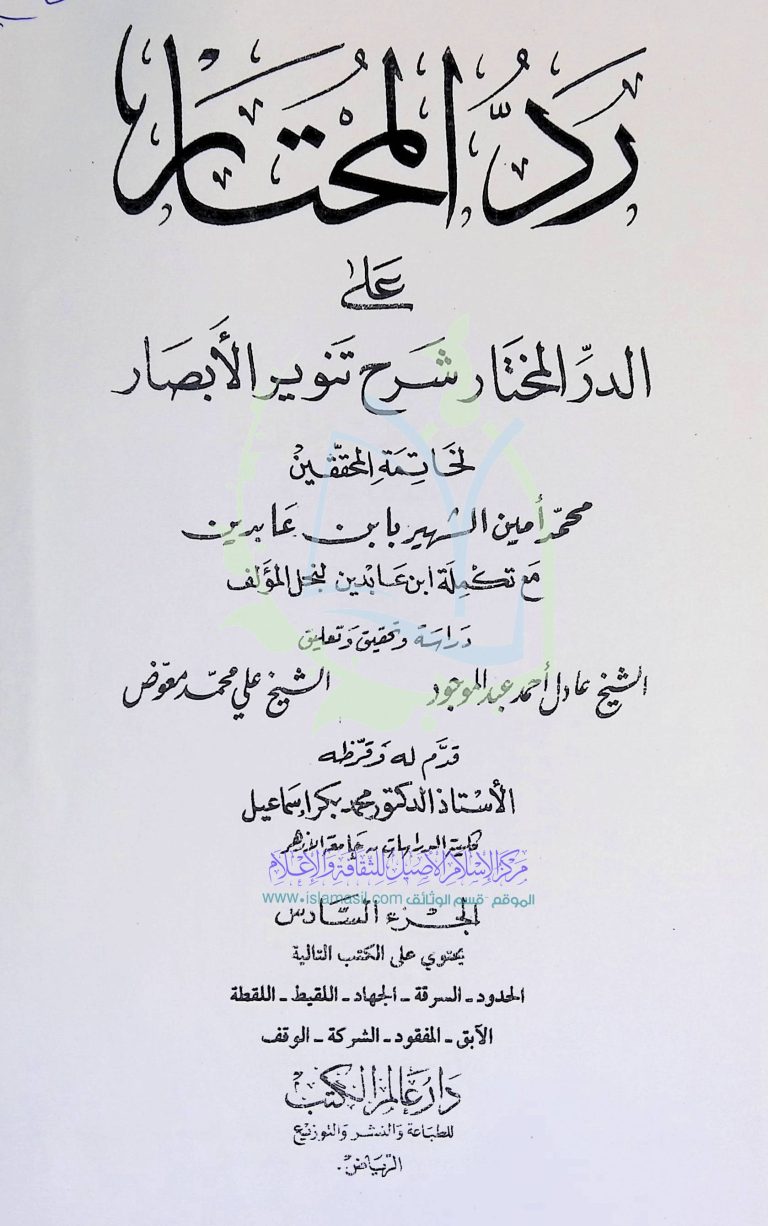 رَدُّ المُحْتَار
عَلى
الدرِّ المختَار شَرح تَنوير الأَبصَار
لخَاتِمَة المحقّقين
محمّد أمين الشهير بابن عَابدين
مَع تكمِلَة ابن عَابدين لنجل المؤلف
دراسَة وتحقيق وَتعليق
الشيخ عادل أحمد عبد الموجود الشيخ علي محمّد معوّض
قدَّم له وَقرّظه
الأستاذ الدكتور محمد بكر إسماعيل
كلية الدراسات - جامعة الأزهر
مركز الإسلام الأصيل للثقافة والإعلام
الموقع - قسم الوثائق www.islamasil.com
الجزء السَّادس
يحتوي على الكتب التالية
الحدود - السرقة - الجهاد - اللقيط - اللقطة
الآبق - المفقود - الشركة - الوقف
دَار عَالم الكتب
للطباعة والنشر والتوزيع
الرياض.